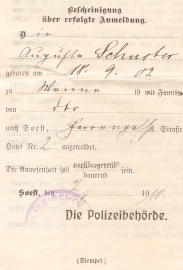 Bescheinigung
über erfolgte Anmeldung.
Die
Auguste Schuster
geboren am 18. 9. 02
zu Wanne ist mit Familie
von dto
nach Soest, Herrengasse Straße
Haus Nr. 2 angemeldet.
Die Anwesenheit soll vorübergehend
dauernd
sein.
Soest, den 19
Die Polizeibehörde.
(Stempel.)